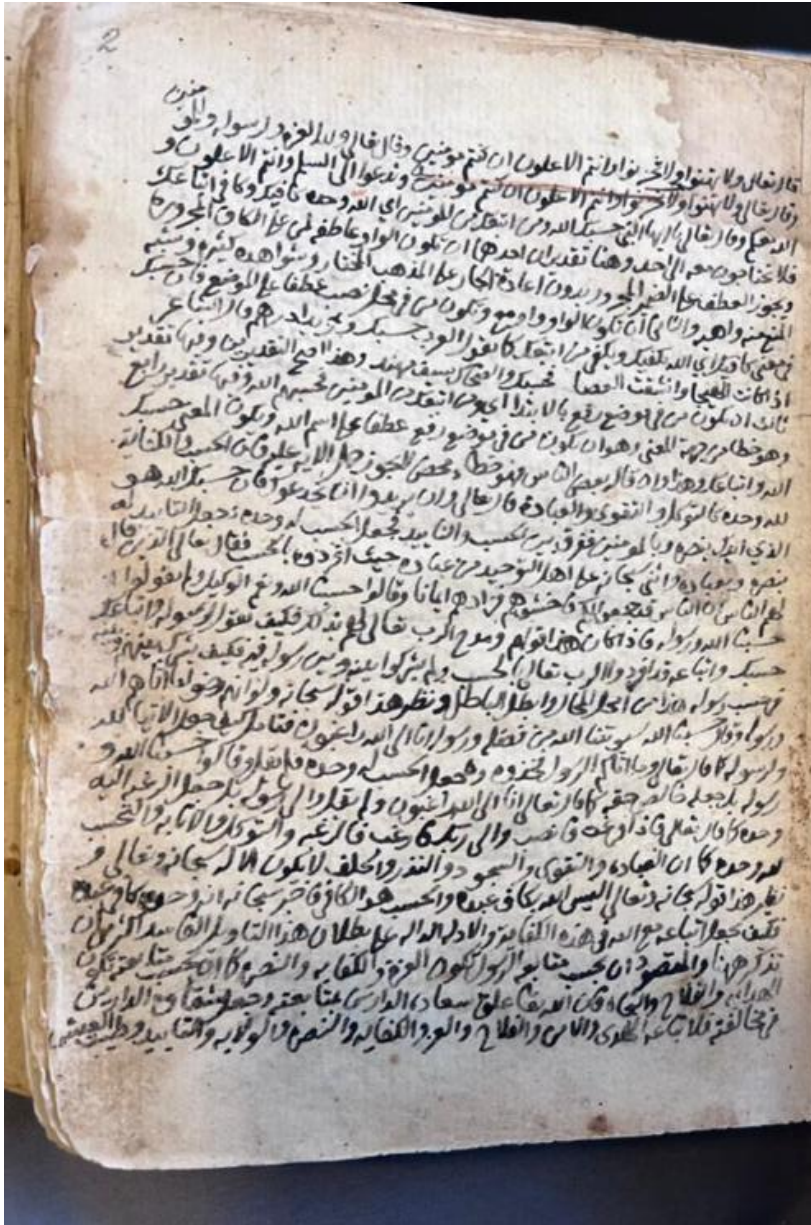 2
منين
قال تعالى ولا تهنوا ولا تحزنوا وانتم الاعلون ان كنتم مومنين وقال تعالى ولله العزه ولرسوله وللمو
وقال تعالى ولا تهنوا ولا تحزنوا وانتم الاعلون ان كنتم مومنين وتدعوا الى السلم وانتم الاعلون و
الله معكم وقال تعالى يا ايها النبي حسبك الله ومن اتبعك من المومنين اي الله وحده كافيك وكافي اتباعك
فلا تحتاجون معه الى احد وهنا تقديران احدهما ان تكون الواو عاطفه لمن على الكاف المجرور
ويجوز العطف على الضمير المجرور بدون اعادة الجار على المذهب المختار وشواهده كثيره وشبه
المنع منه واهيه والثاني ان تكون الواو واو مع وتكون من في محل نصب عطفا على الموضع فان حسبك
في معنى كافيك اي الله يكفيك ويكفي من اتبعك كما تقول العرب حسبك وزيدا درهم قال الشاعر
اذا كانت الهيجا وانشقت العصا فحسبك والضحاك سيف مهند وهذا اصح التقديرين وفيها تقدير
ثالث ان تكون من في موضع رفع بالابتدا اي ومن اتبعك من المومنين فحسبهم الله وفيها تقدير رابع
وهو خطا من جهة المعنى وهو ان تكون من في موضع رفع عطفا على اسم الله ويكون المعنى حسبك
الله واتباعك وهذا وان قال بعض الناس فهو خطاء محض لا يجوز حمل الايه عليه فان الحسب والكفاية
لله وحده كالتوكل والتقوى والعبادة قال تعالى وان يريدوا ان يخدعوك فان حسبك الله هو
الذي ايدك بنصره وبالمومنين ففرق بين الحسب والتاييد فجعل الحسب له وحده وجعل التاييد له
بنصره وبعباده واثنى سبحانه على اهل التوحيد من عباده حيث افردوه بالحسب فقال تعالى الذين قال
لهم الناس ان الناس قد جمعوا لكم فاخشوهم فزادهم ايمانا وقالوا حسبنا الله ونعم الوكيل ولم يقولوا
حسبنا الله ورسوله فاذا كان هذا قولهم ومدح الرب تعالى لهم بذلك فكيف تقول لرسوله واتباعك
حسبك واتباعه قد افردوا الرب تعالى بالحسب ولم يشركوا بينه وبين رسوله فيه فكيف يشرك بينهم وبينه
في حسب رسوله هذا من امحل المحال وابطل الباطل ونظير هذا قوله سبحانه ولو انهم رضوا ما اتاهم الله
ورسوله وقالوا حسبنا الله سيوتينا الله من فضله ورسوله انا الى الله راغبون فتامل كيف جعل الاتيا لله
ولرسوله كما قال تعالى وما اتاكم الرسول فخذوه وجعل الحسب له وحده فلم يقل وقالوا حسبنا الله و
رسوله بل جعله خالص حقه كما قال تعالى انا الى الله راغبون ولم يقل والى رسوله بل جعل الرغبه اليه
وحده كما قال تعالى فاذا فرغت فانصب والى ربك فارغب فالرغبه والتوكل والانابه والتحسب
لله وحده كما ان العباده والتقوى والسجود والنذر والحلف لا يكون الا له سبحانه وتعالى و
نظير هذا قوله سبحانه وتعالى اليس الله بكاف عبده والحسب هو الكافي فاخبر سبحانه انه وحده كاف عبده
فكيف يجعل اتباعه مع الله في هذه الكفايه والادله الداله على بطلان هذا التاويل الفاسد اكثر من ان
تذكر ههنا والمقصود ان بحسب متابعه الرسول تكون العزة والكفايه والنصره كما ان بحسب متابعته تكون
الهدايه والفلاح والنجاه فان الله تعالى علق سعاده الدارين بمتابعته وجعل شقاوه الدارين
في مخالفته فلاتباعه الهدى والامن والفلاح والعز والكفايه والنصره والولايه والتاييد وطيب العيش